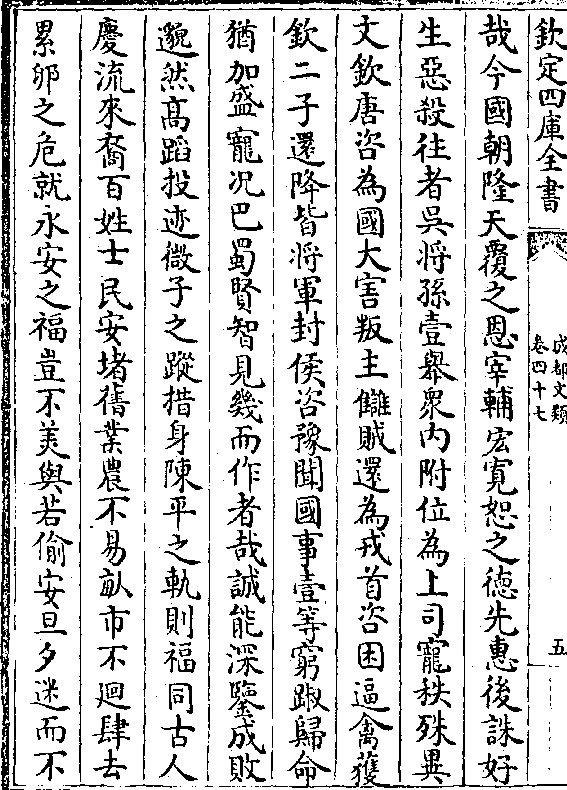 欽定四庫全書
成都文類
卷四十七
五
哉今國朝隆天覆之恩宰輔宏寛恕之德先惠後誅好
生惡殺往者吳將孫壹舉衆内附位為上司寵秩殊異
文欽唐咨為國大害叛主讎賊還為戎首咨困逼禽獲
欽二子還降皆將軍封侯咨豫聞國事壹等窮踧歸命
猶加盛寵况巴蜀賢智見幾而作者哉誠能深鑒成敗
邈然髙蹈投迹微子之蹤措身陳平之軌則福同古人
慶流來裔百姓士民安堵舊業農不易畝市不迴肆去
累卵之危就永安之福豈不美與若偷安旦夕迷而不